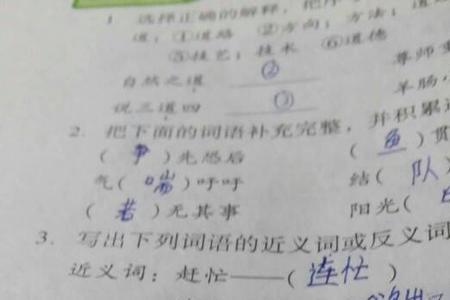 1 选择正确的解释,把序
道:①道路 ②方向;方法;道
⑤技艺;技术 ⑥道德
自然之道 ② 尊师
说三道四 ③ 羊肠小
2. 把下面的词语补充完整,并积累
(争)先恐后 (鱼)贯
气(喘)吁吁 结(队)
(若)无其事 阳光(
3. 写出下列词语的近义词或反义词
近义词:赶忙——(连忙)